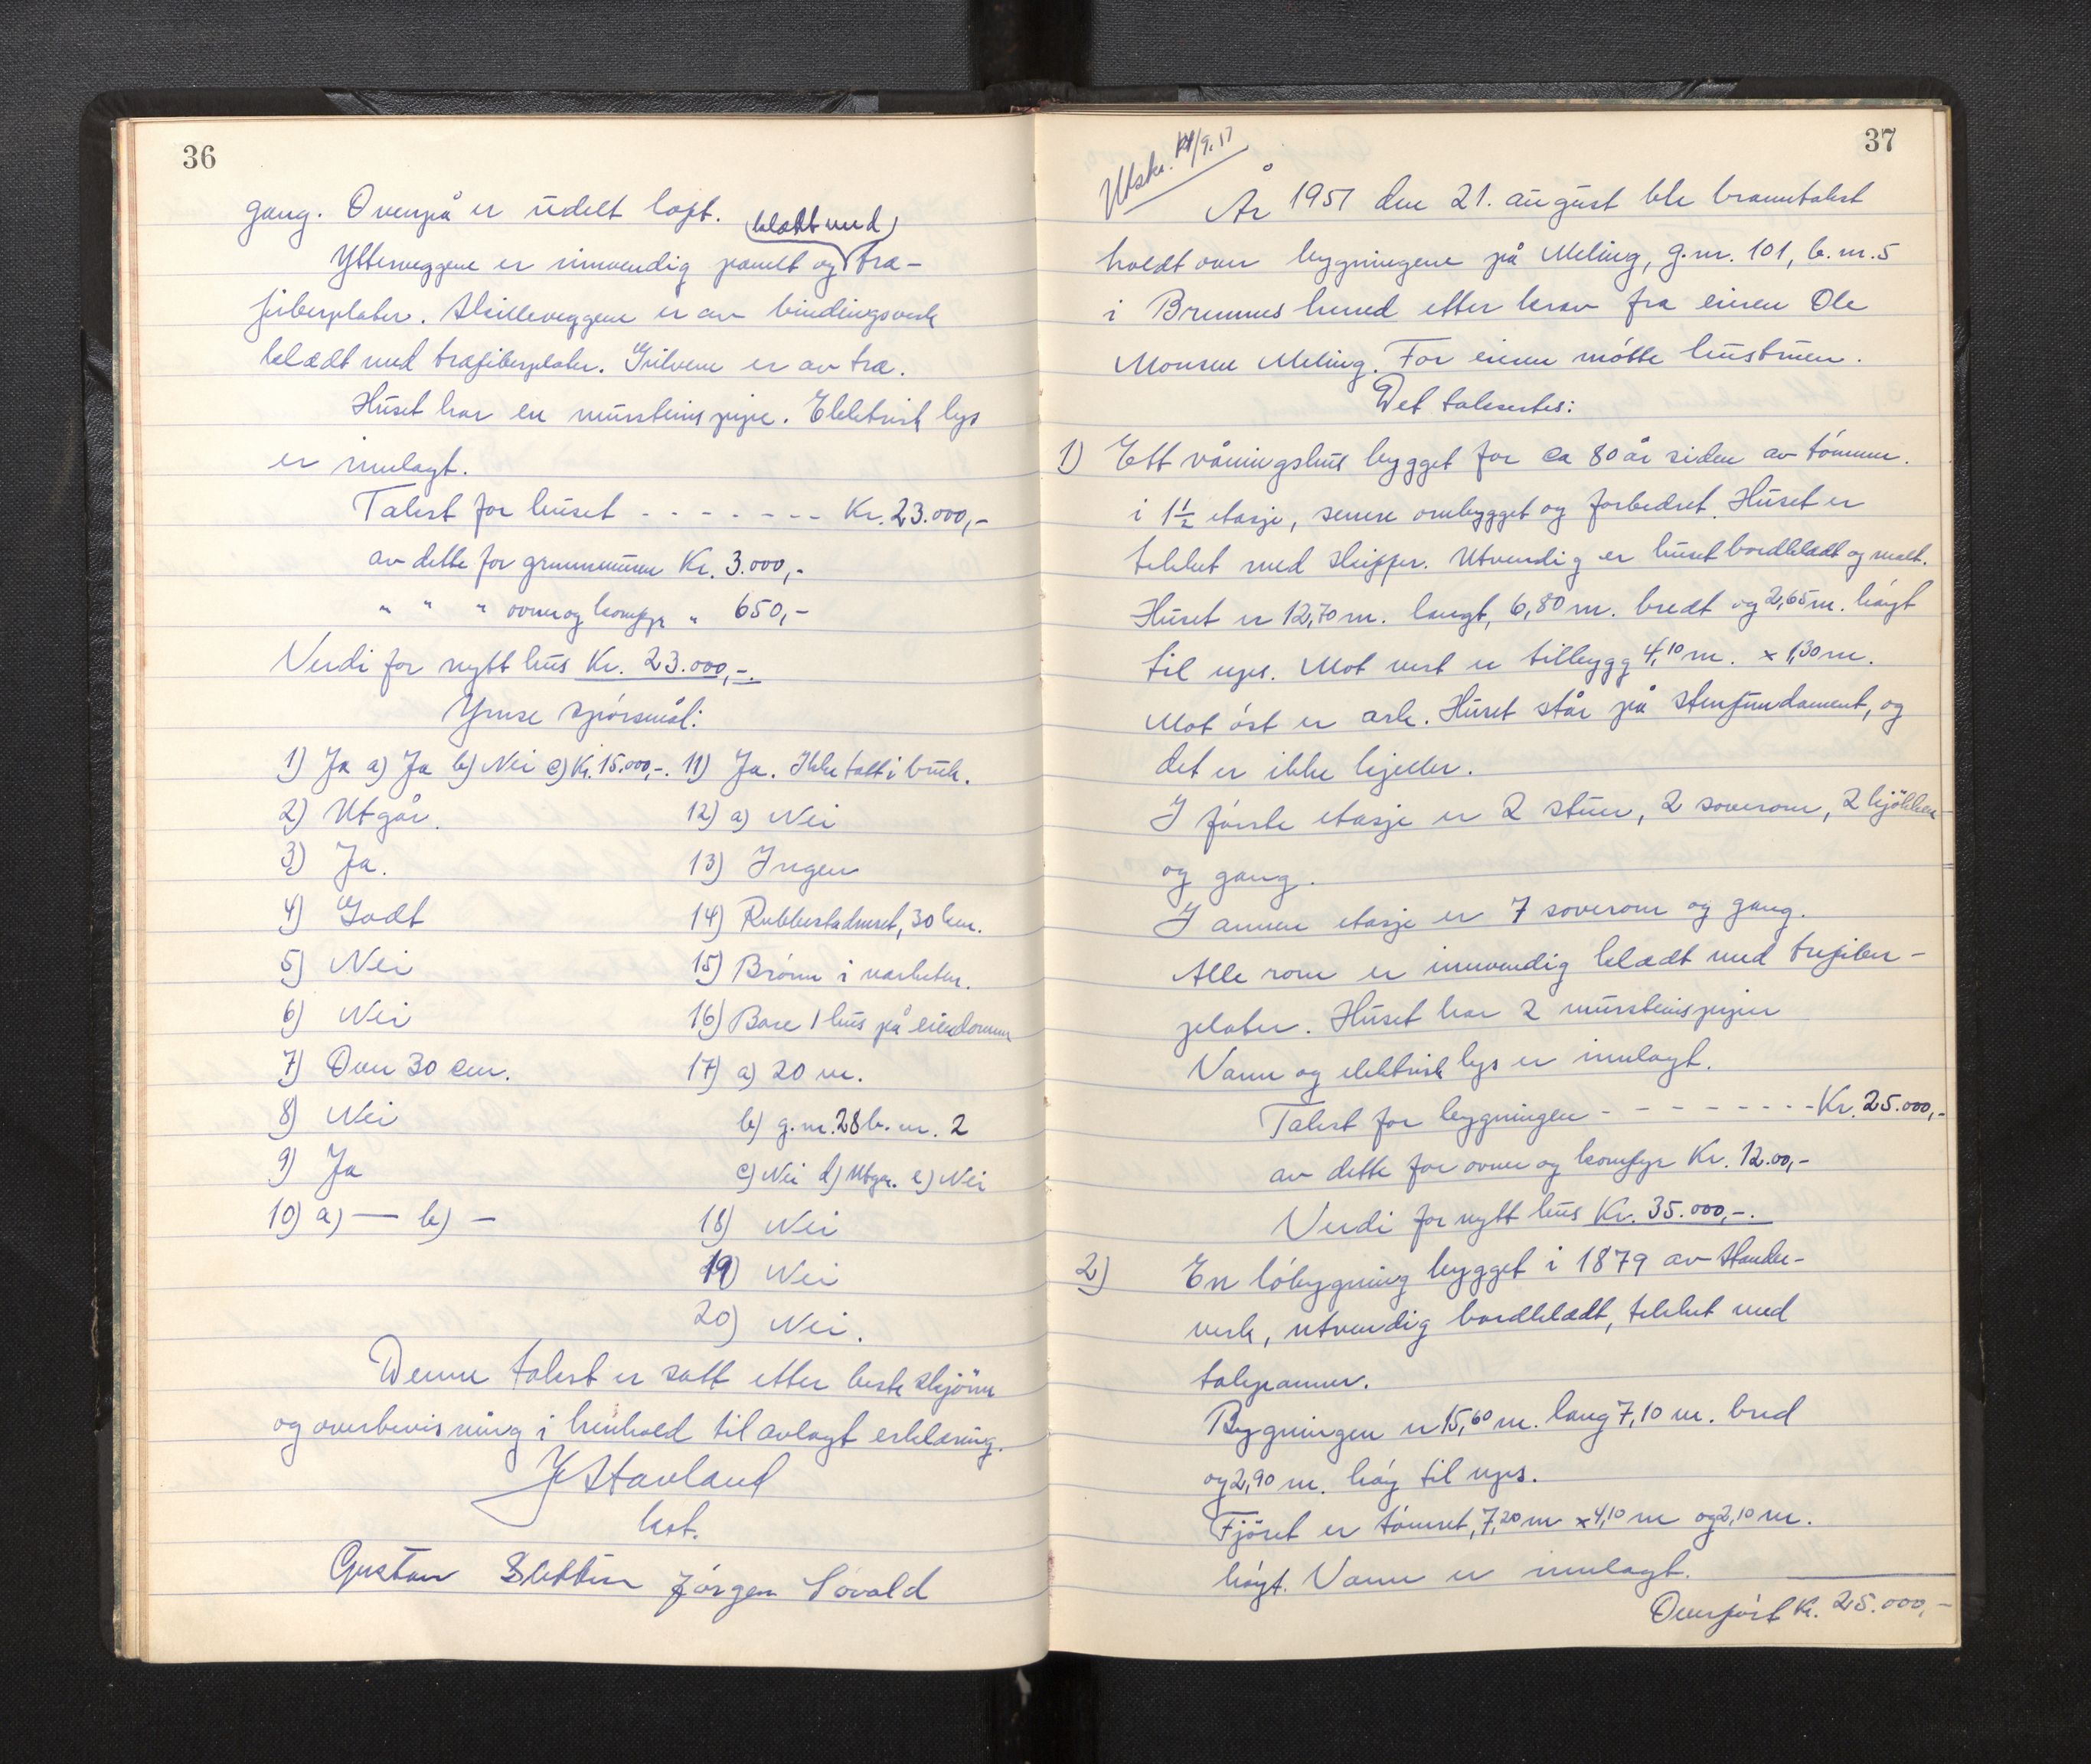 36
gang. Ovenpå er udelt loft.
(klædt med)
Ytterveggene er innvendig panelt og træ-
fiberplater. Skilleveggene er av bindingsverk
klædt med træfiberplater. Gulvene er av træ.
Huset har en murstens pipe. Elektrisk lys
er innlagt.
Takst for huset - - - - - - - Kr. 23.000,-
av dette for grunnmuren Kr. 3.000,-
" " " ovner og komfyr " 650,-
Verdi for nytt hus Kr. 23.000,-.
Ymse spörsmål:
1) Ja a) Ja b) Nei c) Kr. 15.000,-. 11) Ja. Ikke tatt i bruk.
2) Utgår. 12) a) Nei
3) Ja. 13) Ingen
4) Godt 14) Rubbestadneset, 30 km.
5) Nei 15) Brönn i nærheten.
6) Nei 16) Bare 1 hus på eiendommen
7) Over 30 cm. 17) a) 20 m.
8) Nei b) g.nr. 28 b.nr. 2
9) Ja c) Nei d) Utgår. e) Nei
10) a) — b) – 18) Nei
19) Nei
20) Nei.
Denne takst er satt etter beste skjönn
og overbevisning i henhold til avlagt erklæring.
J Stavland
lost.
Gustav Slettin Jörgen Lövold
37
Utskr. /9.57
År 1957 den 21. august ble branntakst
holdt over bygningene på Meling, g.nr. 101, b.nr. 5
i Bremnes herred etter krav fra eieren Ole
Monsen Meling. For eieren mötte hustruen.
Det takseres:
1) Ett våningshus bygget for ca 80 år siden av tömmer.
i 1½ etasje, senere ombygget og forbedret. Huset er
tekket med skiffer. Utvendig er huset bordklædt og malt.
Huset er 12,70 m. langt, 6,80 m. bredt og 2,65 m. höyt
til ups. Mot vest er tilbygg 4,10 m. x 1,30 m.
Mot öst er ark. Huset står på stenfundament, og
det er ikke kjeller.
I förste etasje er 2 stuer, 2 soverom, 2 kjökken
og gang.
I annen etasje er 7 soverom og gang.
Alle rom er innvendig klædt med trefiber-
plater. Huset har 2 murstenspiper
Vann og elektrisk lys er innlagt.
Takst for bygningen - - - - - - - - Kr. 25.000,-
av dette for ovner og komfyr Kr. 12.00,-
Verdi for nytt hus Kr. 35.000,-.
2) En löbygning bygget i 1879 av stender-
verk, utvendig bordklædt, tekket med
takpanner.
Bygningen er 15,60 m. lang 7,10 m. bred
og 2,90 m. höy til ups.
Fjöset er tömret, 7,20 m x 4,10 m og 2,10 m.
höyt. Vann er innlagt.
Overfört Kr. 25.000,-